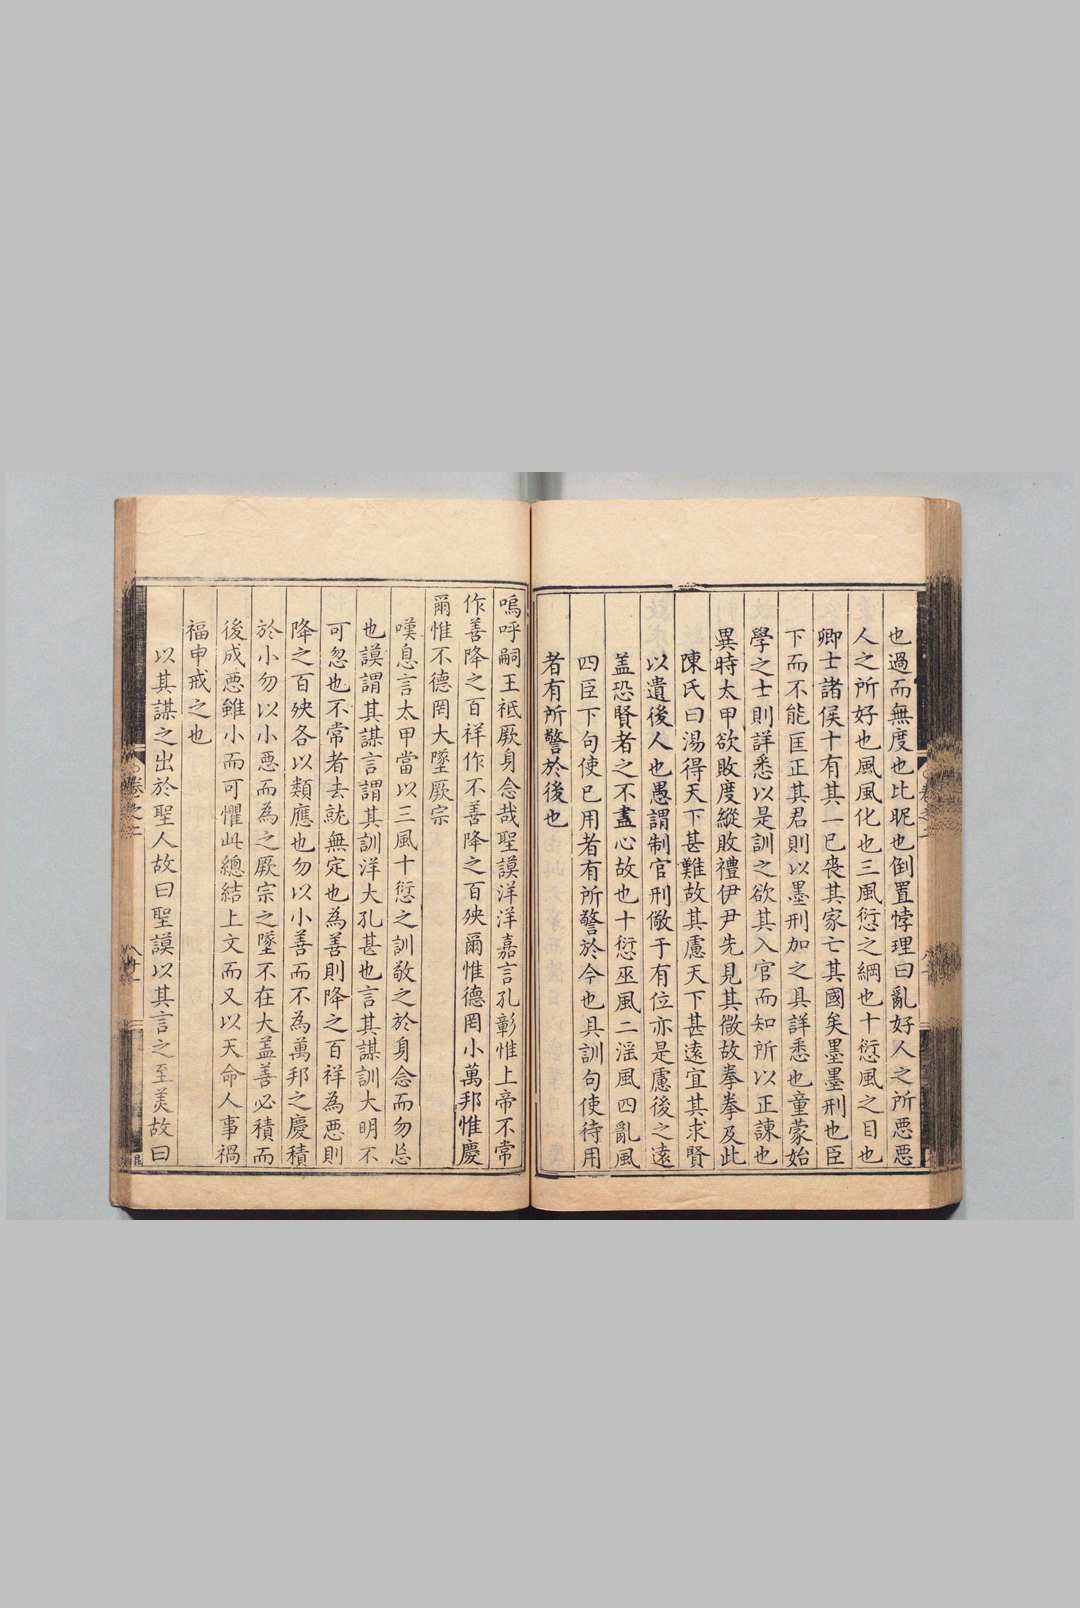 也過而無度也比昵也倒置悖理曰亂好人之所惡惡
人之所好也風風化也三風愆之綱也十愆風之目也
卿士諸侯十有其一已喪其家亡其國矣墨墨刑也臣
下而不能匡正其君則以墨刑加之具詳悉也童蒙始
學之士則詳悉以是訓之欲其入官而知所以正諫也
異時太甲欲敗度縱敗禮伊尹先見其微故拳拳及此
陳氏曰湯得天下甚難故其慮天下甚遠宜其求賢
以遺後人也愚謂制官刑儆于有位亦是慮後之遠
盖恐賢者之不盡心故也十愆巫風二滛風四亂風
四臣下句使已用者有所警於今也具訓句使待用
者有所警於後也
嗚呼嗣王祗厥身念哉聖謨洋洋嘉言孔彰惟上帝不常
作善降之百祥作不善降之百殃爾惟德罔小萬邦惟慶
爾惟不德罔大墜厥宗
嘆息言太甲當以三風十愆之訓敬之於身念而勿忘
也謨謂其謀言謂其訓洋大孔甚也言其謀訓大明不
可忽也不常者去就無定也為善則降之百祥為惡則
降之百殃各以類應也勿以小善而不為萬邦之慶積
於小勿以小惡而為之厥宗之墜不在大盖善必積而
後成惡雖小而可懼此總結上文而又以天命人事禍
福申戒之也
以其謀之出於聖人故曰聖謨以其言之至美故曰
卷之